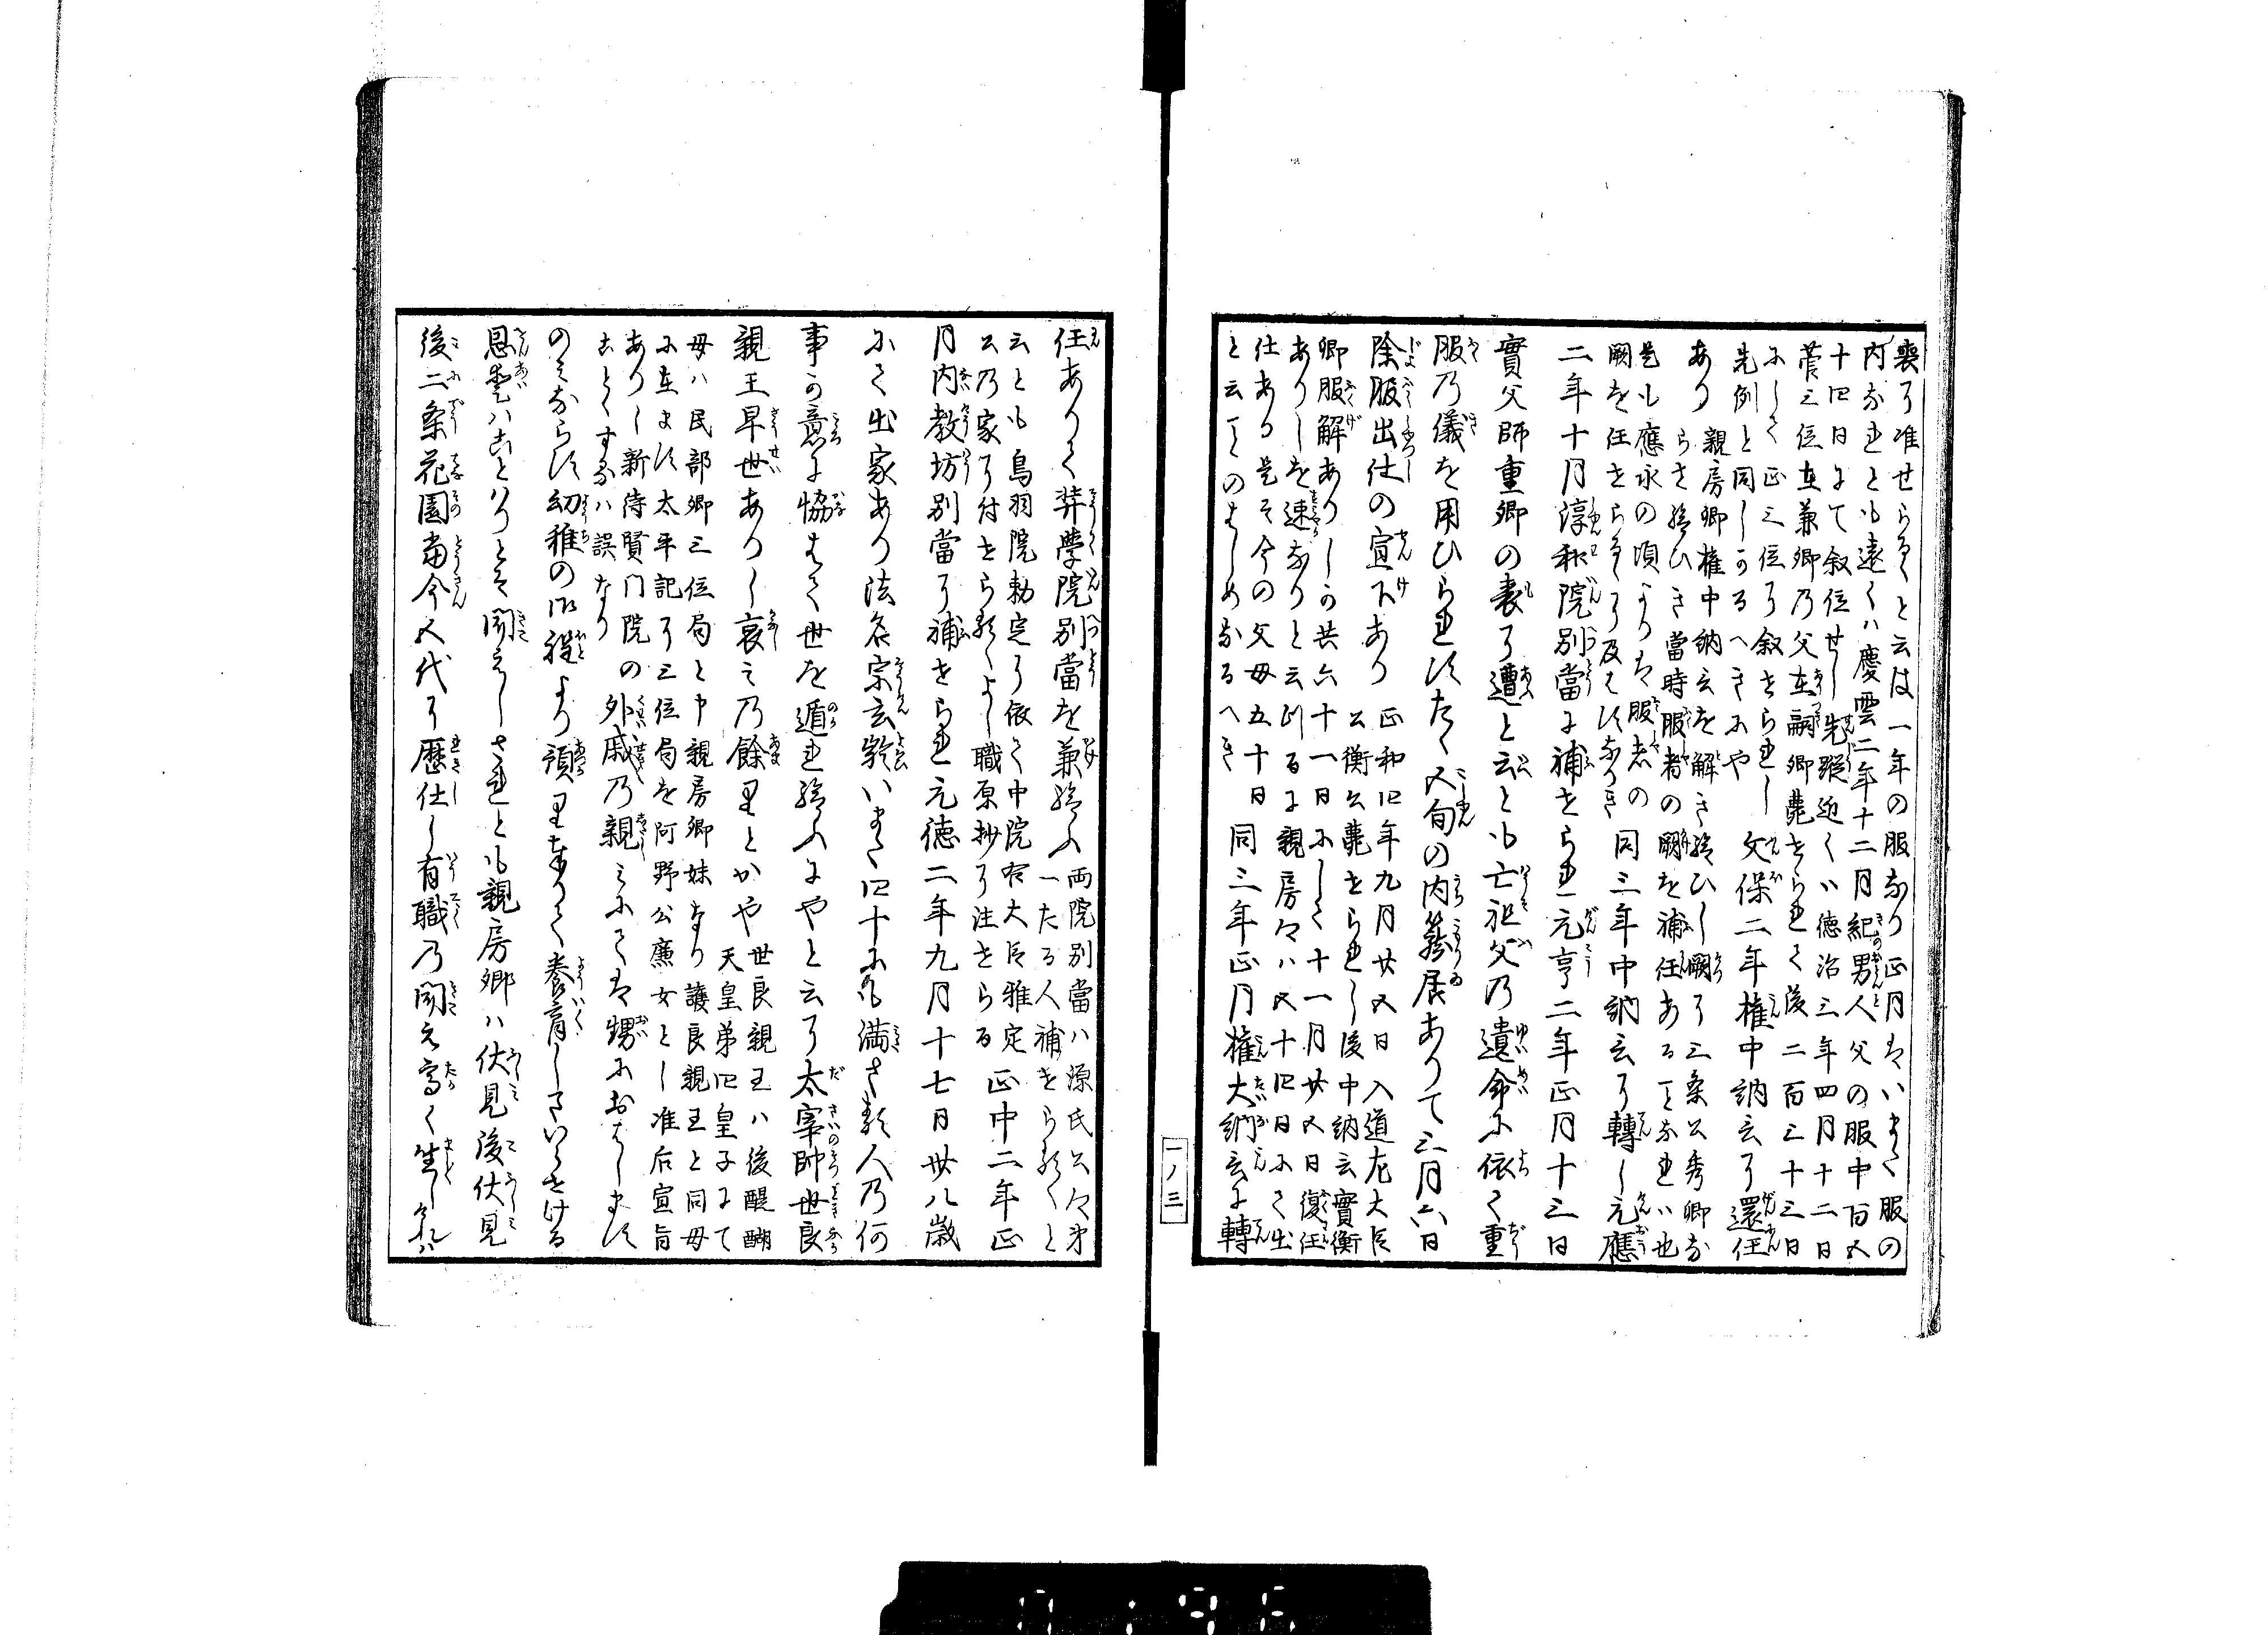 喪ニ准せらるゝと云は一年の服なり正月はいまた服の
内なれとも遠くハ慶雲二年十二月紀男人父の服中百五
十四日にて叙位せし先蹤近くハ徳治三年四月十二日
菅三位在兼卿乃父在嗣卿薨せられて後二百三十三日
にして正三位ニ叙せられし 文保二年権中納言ニ還任
先例と同しかるへきにや
あり 親房卿権中納言を解き給ひし闕ニ三条公秀卿な
らせ給ひき當時服者の闕を補任ある事なれハ也
是も應永の頃よりは服者の
闕を任せらるゝニ及はすなりき 同三年中納言ニ轉し元應
二年十月淳和院別當に補せられ元亨二年正月十三日
實父師重卿の喪ニ遭と云とも亡祖父乃遺命に依て重
服乃儀を用ひられすたゝ五旬の内籠居ありて三月六日
除服出仕の宣下あり 正和四年九月廿五日入道左大臣
公衡公薨せられし後中納言實衡
卿服解ありしか共六十一日にして十一月廿五日復任
ありしを速なりと云斗るに親房公ハ五十四日にて出
仕ある是そ今の父母五十日
と云事のはしめなるへき 同三年正月権大納言に轉
任ありて弉學院別當を兼給ふ 両院別當ハ源氏公々第
一たる人補せらるゝと
云とも鳥羽院勅定ニ依て中院右大臣雅定
公乃家ニ付せらるゝよし職原抄ニ注せらる 正中二年正
月内教坊別當ニ補せられ元徳二年九月十七日卅八歳
にて出家あり法名宗玄齢いまた四十にも満さる人乃何
事か意に協はて世を遁れ給ふにやと云ニ太宰帥世良
親王早世ありし哀み乃餘りとかや 世良親王ハ後醍醐
天皇弟四皇子にて
母ハ民部卿三位局と申親房卿妹なり護良親王と同母
に在ます太平記ニ三位局を阿野公廉女とし准后宣旨
ありし新待賢門院の
ことくするハ誤なり 外戚乃親みにては甥におはします
のみならす幼稚の御程より預り奉りて養育しまいらせける
恩愛ハことはりとそ聞えしされとも親房卿ハ伏見後伏見
後二条花園當今五代ニ歴仕し有職乃聞え高く坐しけれハ
一ノ三